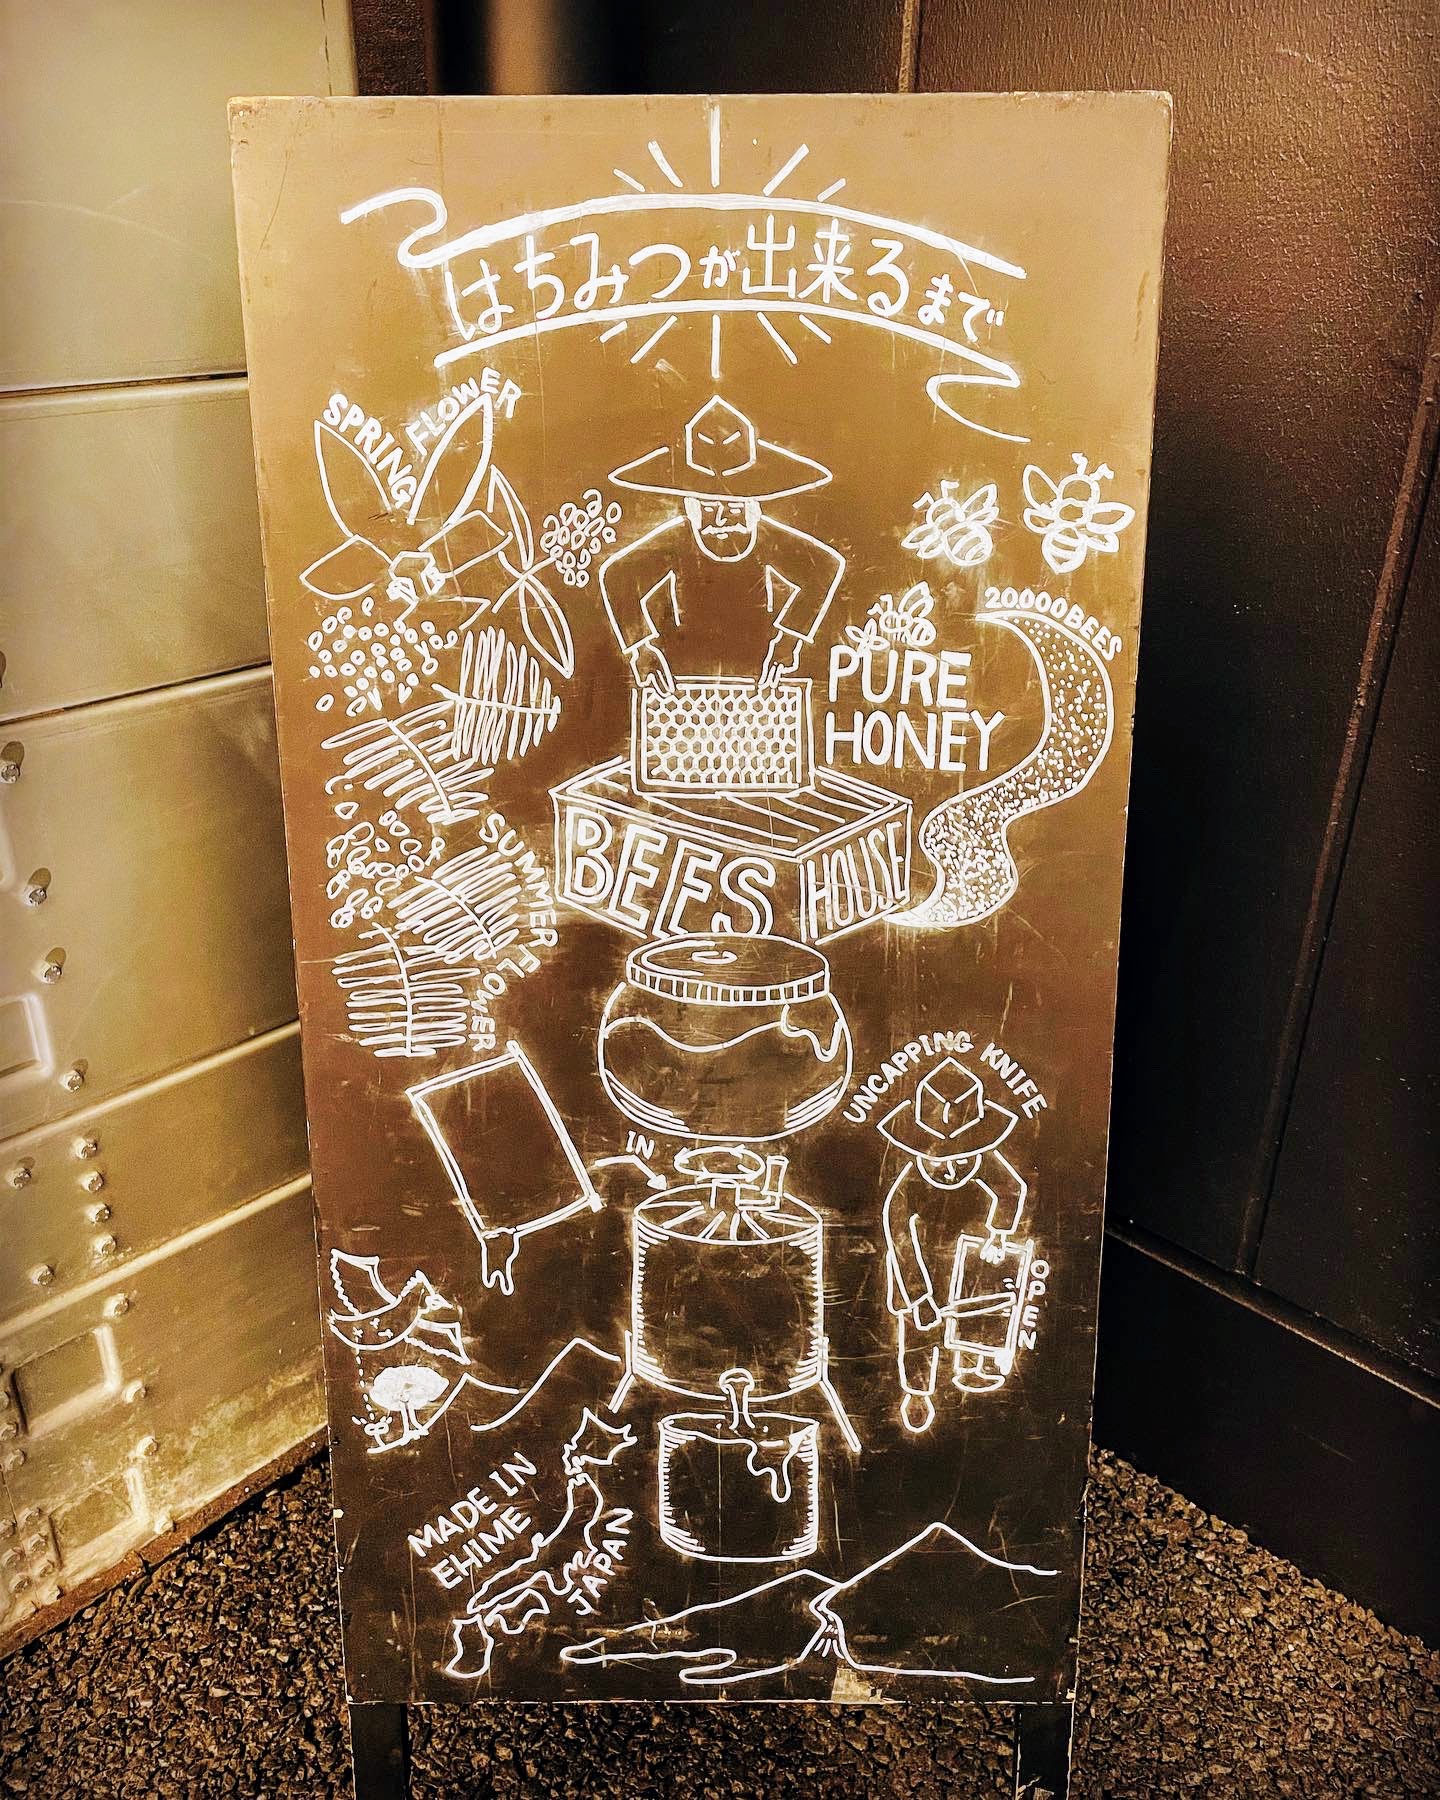 はちみつが出来るまで
SPRING FLOWER
20.000BEES
PURE
HONEY
BEES HOUSE
SUMMER FLOWER
UNCAPPING KNIFE
IN
OPEN
MADE IN
EHIME
JAPAN